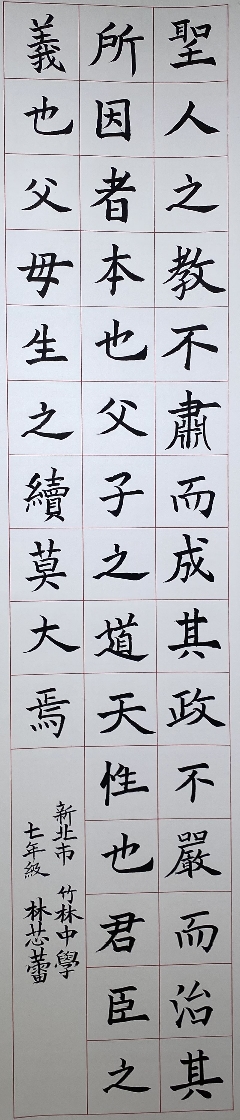 聖人之教不肅而成其政不嚴而治其
所因者本也父子之道天性也君臣之
義也父母生之續莫大焉
新北市 竹林中學
七年級 林芯蕾